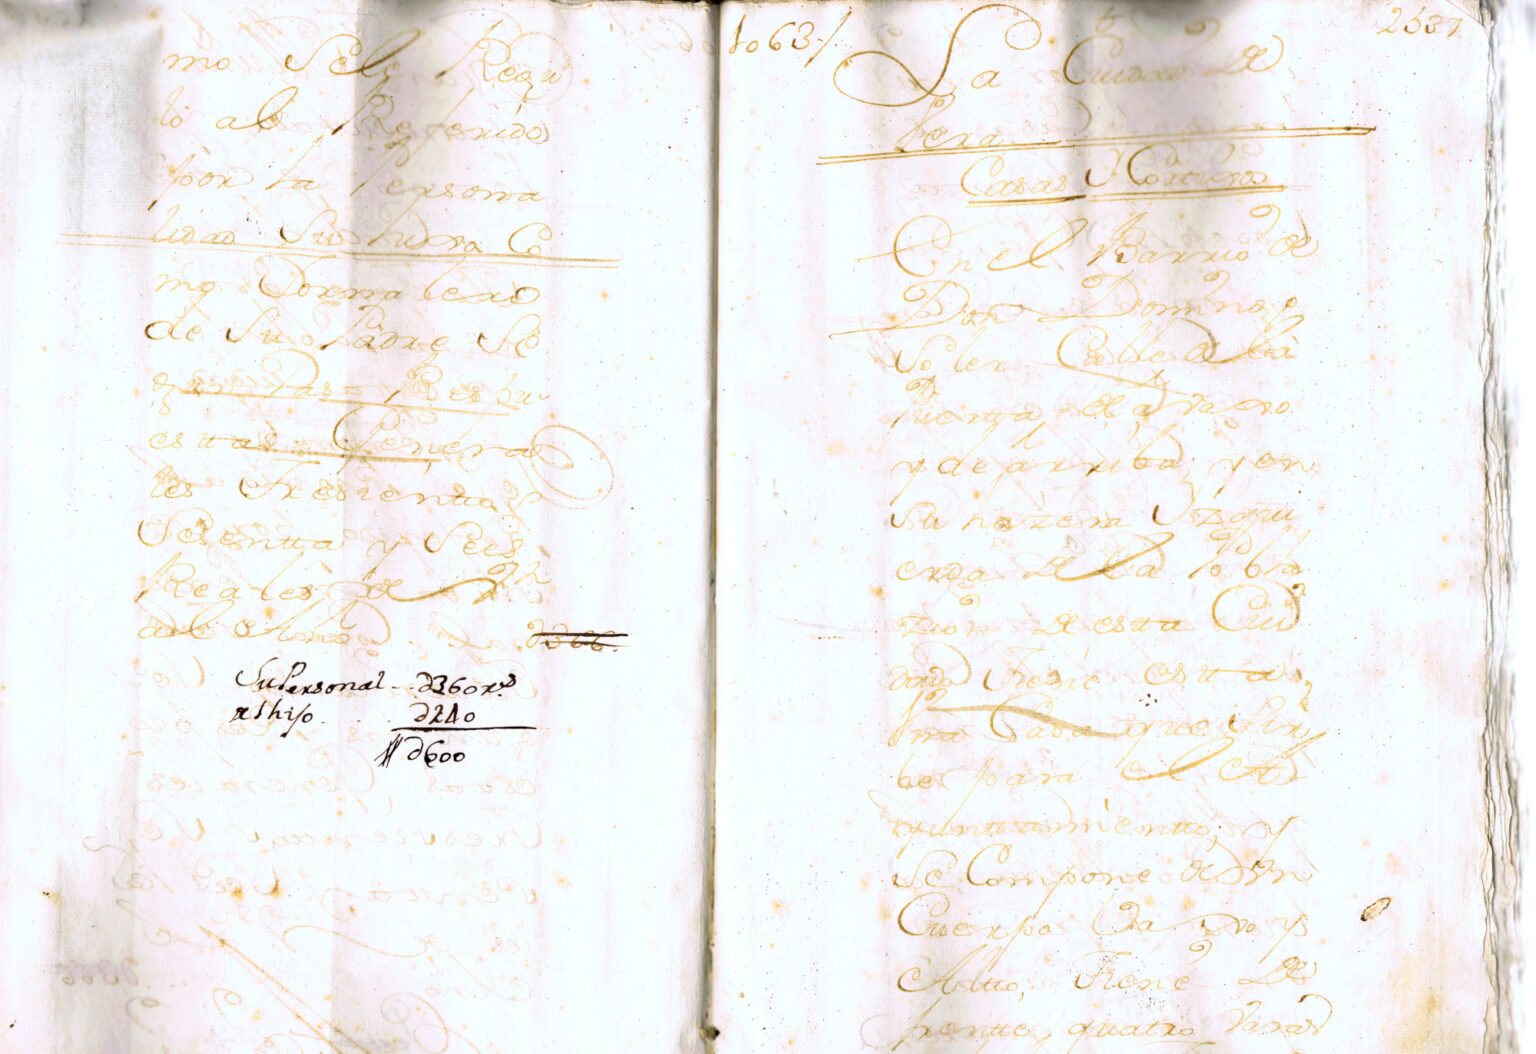 mo Sele Regu
lo al Referido
por la Persona
lidad Su hidra Co
mo Jornalero
de Su Padre Se
gun las Respu
estas Genera
les Trescientos
Sesentta y Seis
Reales de Vn
al Año
d366.
Su Personal .. d360 rs
al hijo . . . d240
d600
fo 63.
2537
La Ciudad de
Vera
Casas Y Cortixos
En el Barrio de
Don Domingo
Soler Calle de la
Puertta de avajo
y de arriba, y en
Su hazera Yzqui
erda de La Pobla
zion de estta Ciu
dad tiene estta
Vna Casa que Sir
be para el A
yunttamientto, y
Se Compone de Vn
Cuerpo Vajo y
Altto, tiene de
frentte quatro Varas